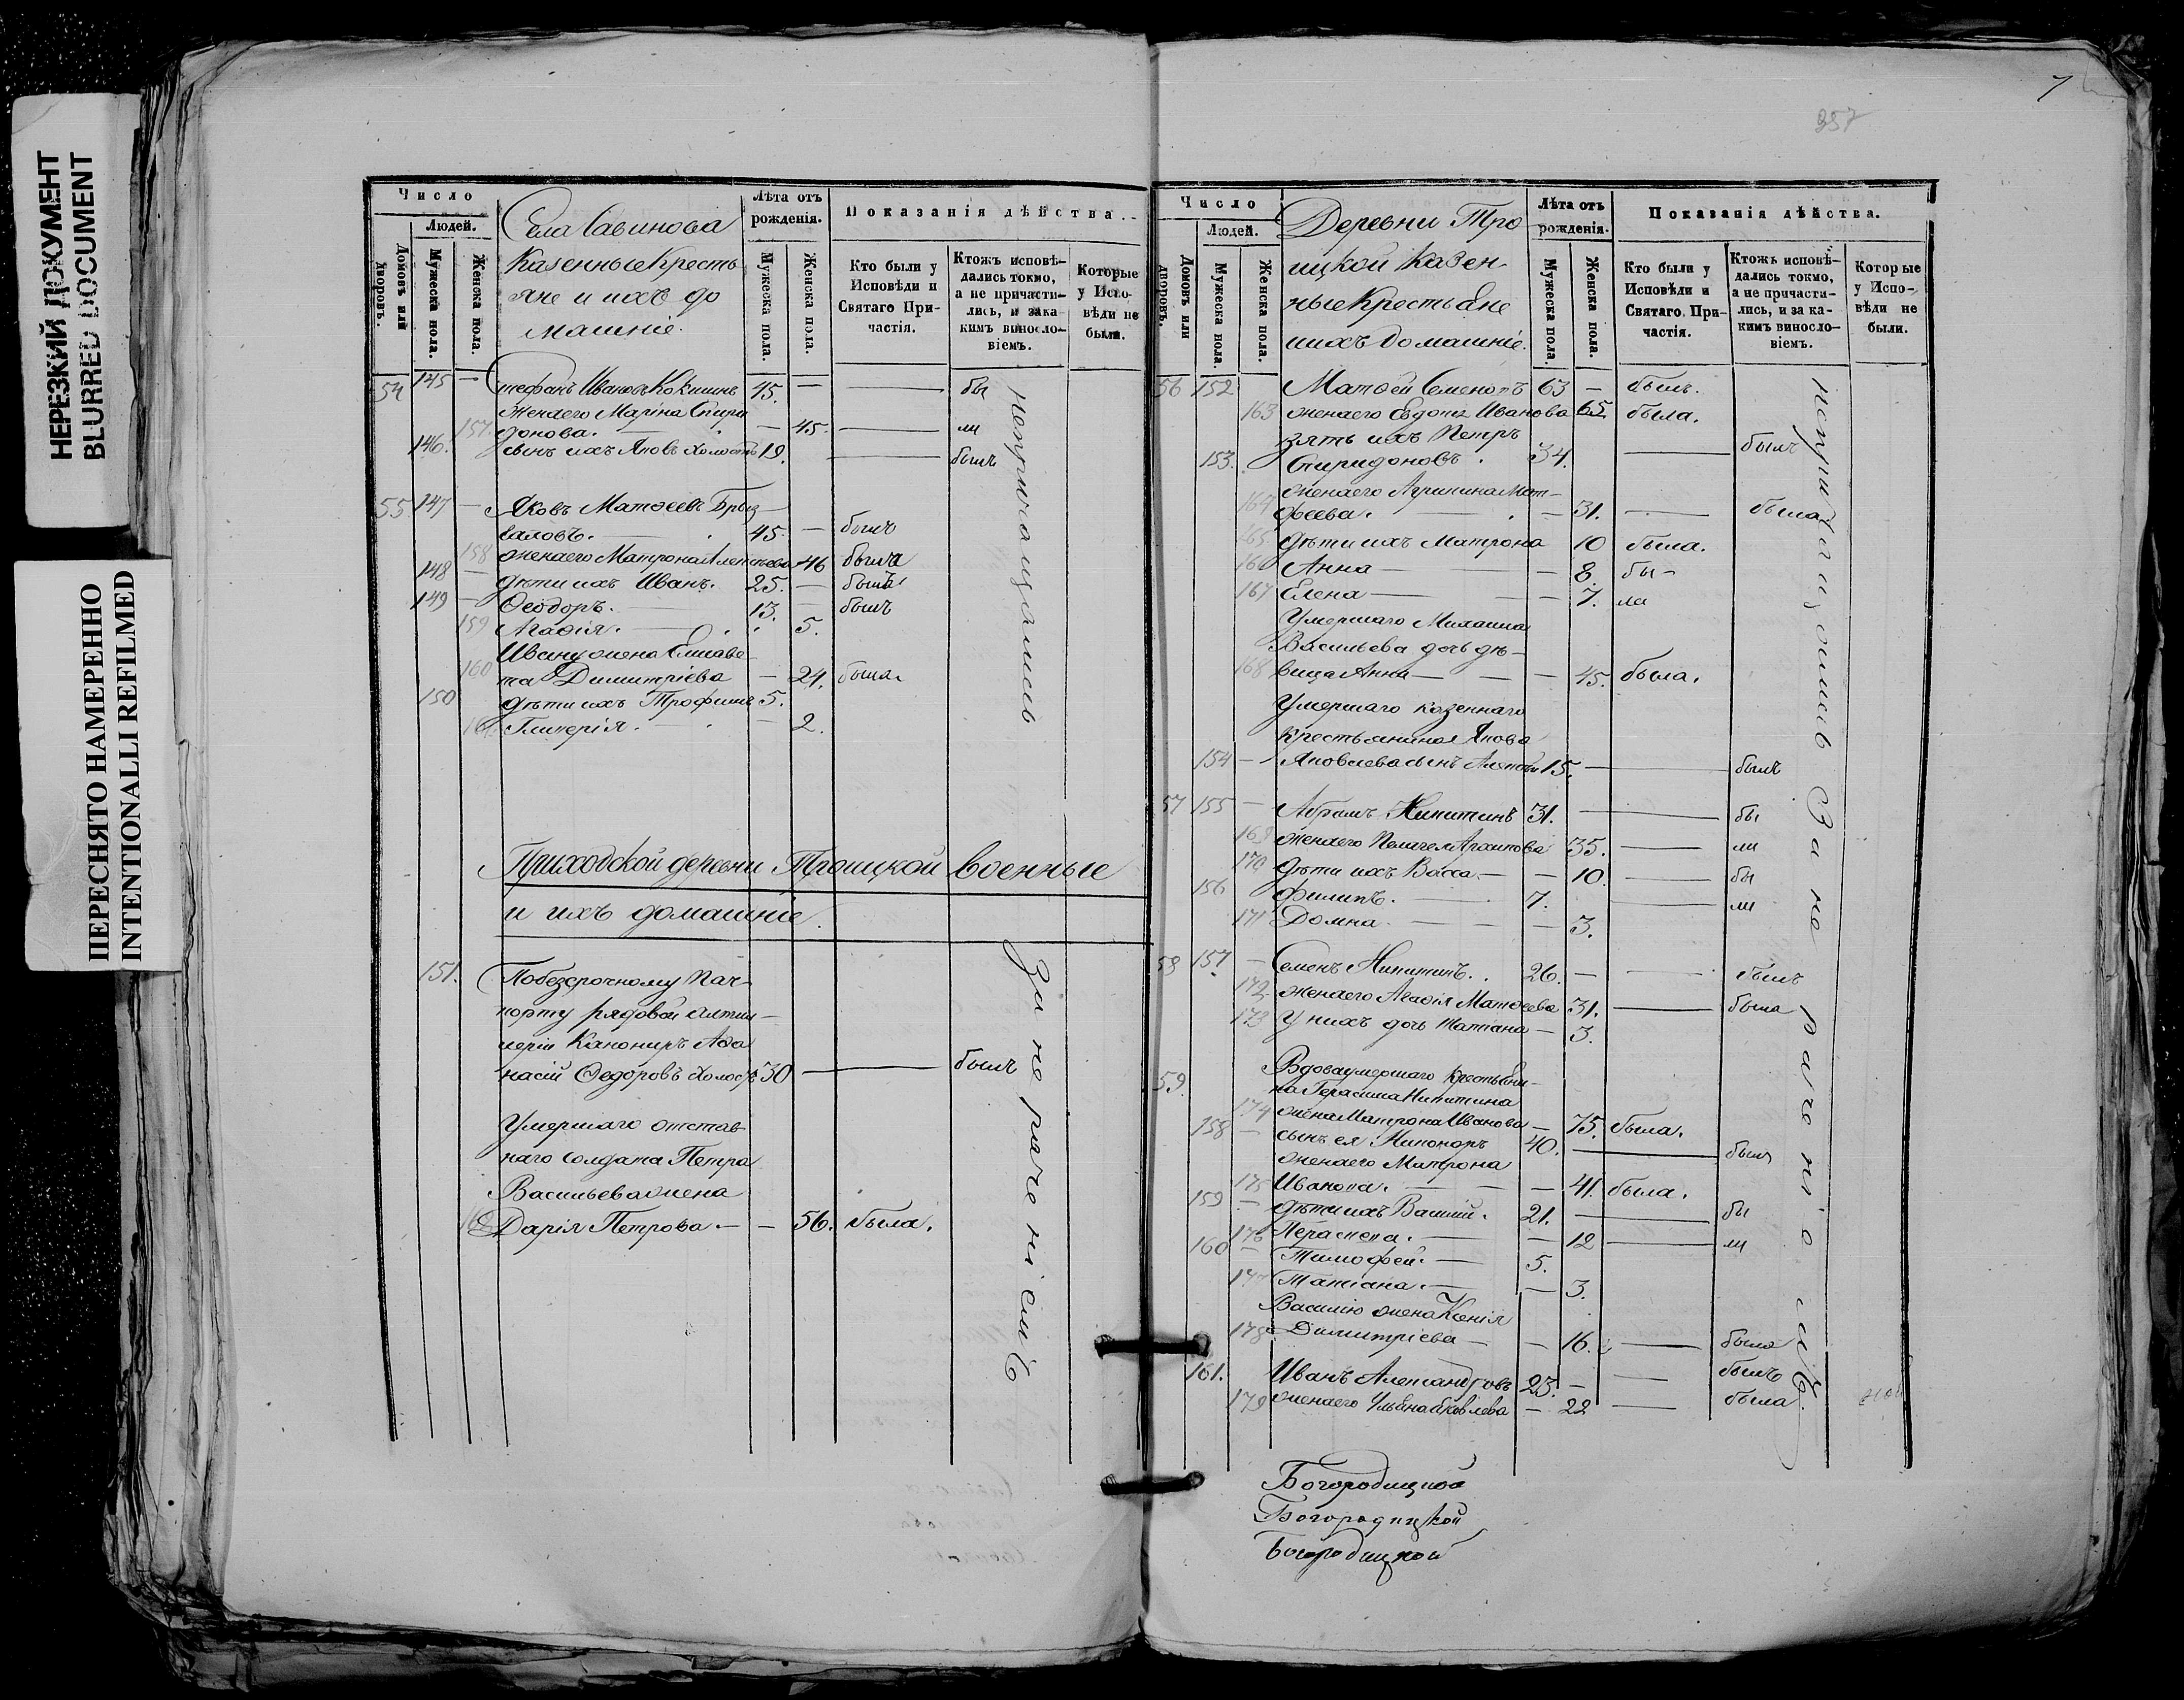 НЕРЕЗКИЙ ДОКУМЕНТ
BLURRED DOCUMENT
ПЕРЕСНЯТО НАМЕРЕННО
INTENTIONALLI REFILMED
Число
Людей.
Домовъ или дворовъ.
Мужеска пола.
Женска пола.
Села Савинова
Казенные Кресть
яне и ихъ до
машніе.
Лѣта отъ рожденія.
Мужеска пола.
Женска пола.
Показанія дѣйства.
Кто были у Исповѣди и Святаго Причастія.
Ктожъ исповѣ-
дались токмо,
а не причасти-
лись, и зака-
кимъ виносло-
віемъ.
Которые у Испо-
вѣди не были.
54 145 — Стефанъ Ивановъ Кокшинъ 45. — — бы
жена его Марина Спири
157. донова. — 45. — ли
146. сынъ ихъ Яковъ холостъ 19. — былъ
непричащались
55 147 — Яковъ Матѳеевъ
45. — былъ
158 жена его Матрона 46 была
148 — дѣти ихъ Иванъ. 25. — былъ
149 — Ѳеодоръ. 13. — былъ
159 Агаѳія. 5.
Ивану жена Елисаве
160 та Димитріева — 24. была.
150 дѣти ихъ Трофимъ 5.
161 Гликерія. — 2.
Приходской деревни Троицкой военные
и ихъ домашніе.
151. По безсрочному пач-
порту рядовой
леріи Канониръ Аѳа
насій Ѳедоровъ холостъ 30 — былъ
Умершаго отстав
наго солдата Петра
Васильева жена
162 Дарія Петрова. — — 56. была.
За нераченіемъ
7
357
Число
Людей.
Домовъ или дворовъ.
Мужеска пола.
Женска пола.
Деревни Тро
ицкой Казен-
ные Крестьяне
и ихъ домашніе.
Лѣта отъ рожденія.
Мужеска пола.
Женска пола.
Показанія дѣйства.
Кто были у Исповѣди и Святаго Причастія.
Ктожъ исповѣ-
дались токмо,
а не причасти-
лись, и за ка-
кимъ винословіемъ.
Которые у Испо-
вѣди не были.
56 152 Матѳей Семеновъ 63 — былъ.
163 жена его Евдокія Иванова 65. была.
зять ихъ Петръ
153. Спиридоновъ. 34. — былъ
жена его Агрипина Мат-
164 фѣева. — 31. — была
165 дѣти ихъ Матрона 10 была.
166 Анна — — 8. бы-
167 Елена — — 7. ли
Умершаго Михаила
Васильева дочь дѣ-
168 вица Анна — — 45. была.
Умершаго казеннаго
крестьянина Якова
154 — Яковлева сынъ 15. — былъ
57 155 — Абрамъ Никитинъ 31. — бы
169 жена его Пелагея Архипова 35. — ли
170 дѣти ихъ Васса. — — 10. — бы
156 Филипъ. — 7. — ли
171 Домна. — — 3.
58 157. — Семенъ Никитинъ. 26. — — былъ
172. жена его Агаѳія Матѳеева 31. — была
173 у нихъ дочь Татіана — 3.
59. Вдова умершаго крестьяни-
на Герасима Никитина
174 жена Матрона Иванова — 75. была.
158 — сынъ ея Никоноръ 40. — былъ
жена его Матрона
175 Иванова. — — 41. была.
159 — дѣти ихъ Василій. 21. — бы
176 Параскева. — — 12 — ли
160 — Тимофей. — 5.
177 Татіана. — — 3.
Василію жена Ксенія
178 Димитріева — — 16. — была
161. Иванъ Александровъ 23. — — былъ
179 жена его Ульяна Яковлева — 22 — была
непричащались За нераченіемъ
Богородицкой
Богородицкой
Богородицкой